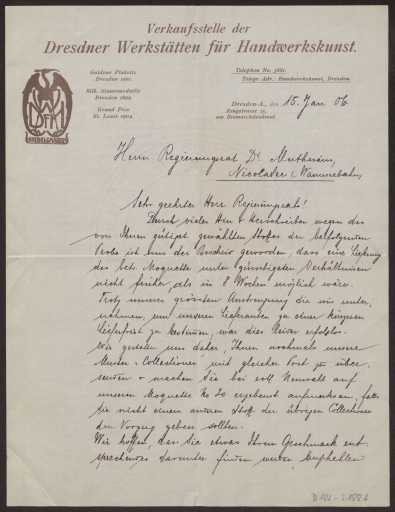 Verkaufsstelle der
Dresdner Werkstätten für Handwerkskunst.
Goldene Plakette
Dresden 1901.
Silb. Staatsmedaille
Dresden
Grand Prix
St. Louis 1904
Telephon No.
Telegr. Adr. Handwerkskunst, Dresden.
Dresden-A., den 15. Jan. 06
Ringstrasse 15,
am Bismarckdenkmal
Herrn Regierungsrat Dr. Muthesius,
Nicolassee (Wannseebahn)
Sehr geehrter Herr Regierungsrat!
Durch vieles Hin & Herschreiben wegen des
von Ihnen gütigst gewählten Stoffes der beifolgenden
Probe ist uns der Bescheid geworden, dass eine Lieferung
des betr. Moquette unter günstigsten Verhältnissen
nicht früher, als in 8 Wochen möglich wäre.
Trotz unserer grössten Anstrengung die wir unter-
nahmen, um unseren Lieferanten zu einer kürzeren
Lieferfrist zu bestimmen, war dies leider erfolglos.
Wir gestatten uns daher, Ihnen nochmals unsere
Muster-Collectionen mit gleicher Post zu über-
senden & machen Sie bei voll auf
unseren Moquette No 30 ergebenst aufmerksam, falls
Sie nicht einem anderen Stoff der übrigen Collectionen
den Vorzug geben sollten.
Wir hoffen, dass Sie etwas Ihrem Geschmack ent-
sprechendes darunter finden werden & empfehlen